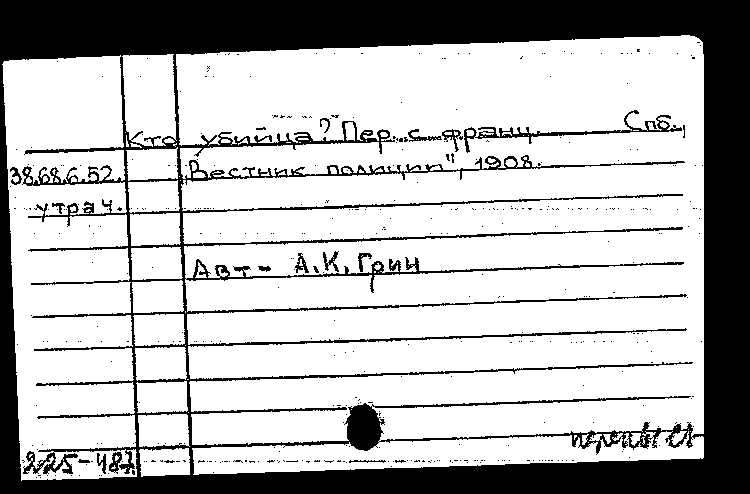 Кто убийца? Пер. с франц. Спб.,
38.68.6.52. „Вестник полиции", 1908.
утрач.
Авт - А.К. Грин
225-487